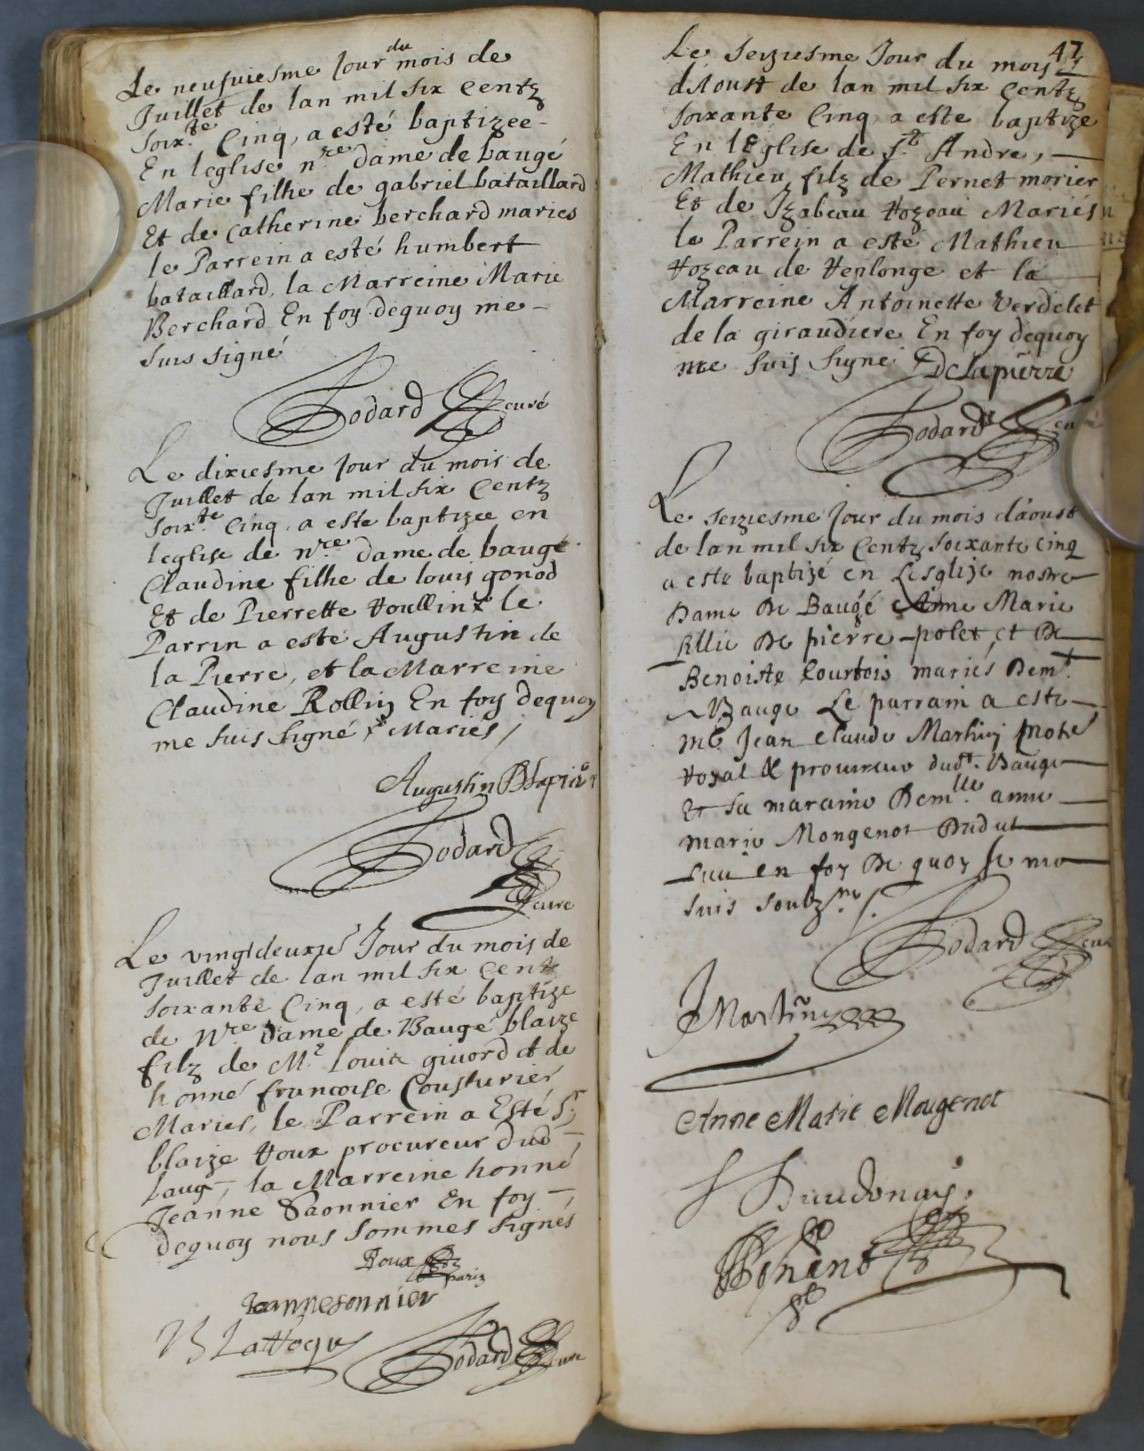 Le neufuiesme Jour du mois de
Juillet de lan mil six centz
soix.te Cinq, a esté baptizee
En leglise n.re dame de baugé
Marie filhe de gabriel bataillard
Et de Catherine berchard maries
le Parrein a esté humbert
bataillard, la Marreine Marie
Berchard En foy dequoy me
suis signé
Bodard curé
Le dixiesme Jour du mois de
Juillet de lan mil six Centz
soix.te Cinq, a este baptizee en
leglise de n.re dame de baugé
Claudine filhe de louis gonod
Et de Pierrette le
Parrin a esté Augustin de
la Pierre, et la Marreine
Claudine Rollin En foy dequoy
me suis signé Mariés /
Augustin
Bodard
cure
Le vingtdeuxie Jour du mois de
Juillet de lan mil six Cent
soixante Cinq, a esté baptize
de N.re Dame de Baugé blaize
filz de M.e louis giuord et de
honne francoise Cousturier
Maries, le Parrein a Esté S.r
blaize Roux procureur dud
baug, la Marreine honné
Jeanne Saonnier En foy
dequoy nous sommes signés
Roux
Jeanne sonnier
Bodard cure
47
Le seiziesme Jour du moys
dAoust de lan mil six Centz
soixante Cinq a este baptize
En lEglise de S.t Andre,
Mathieu filz de Pernet morier
Et de Izabeau Rozeau Mariés
le Parrein a esté Mathieu
Rozeau de Replonge et la
Marreine Antoinette Verdelet
de la giraudiere En foy dequoy
me suis signe Delapierre
Bodard cu
Le seiziesme Jour du mois d'aoust
de lan mil six Centz soixante cinq
a esté baptizé en Lesglize nostre
Dame De Baugé Anne Marie
fillie De pierre polet et De
Benoiste Courtois mariés Dem.t
a Bauge Le parrain a esté
M.e Jean Claude Martin not.e
Royal & procureur dud.t Bauge
Et sa maraine Dem.lle anne
marie Mongenot
en foy De quoy Je me
suis soubz.ne /.
Bodard cure
J Martin
Anne Marie Mougenot